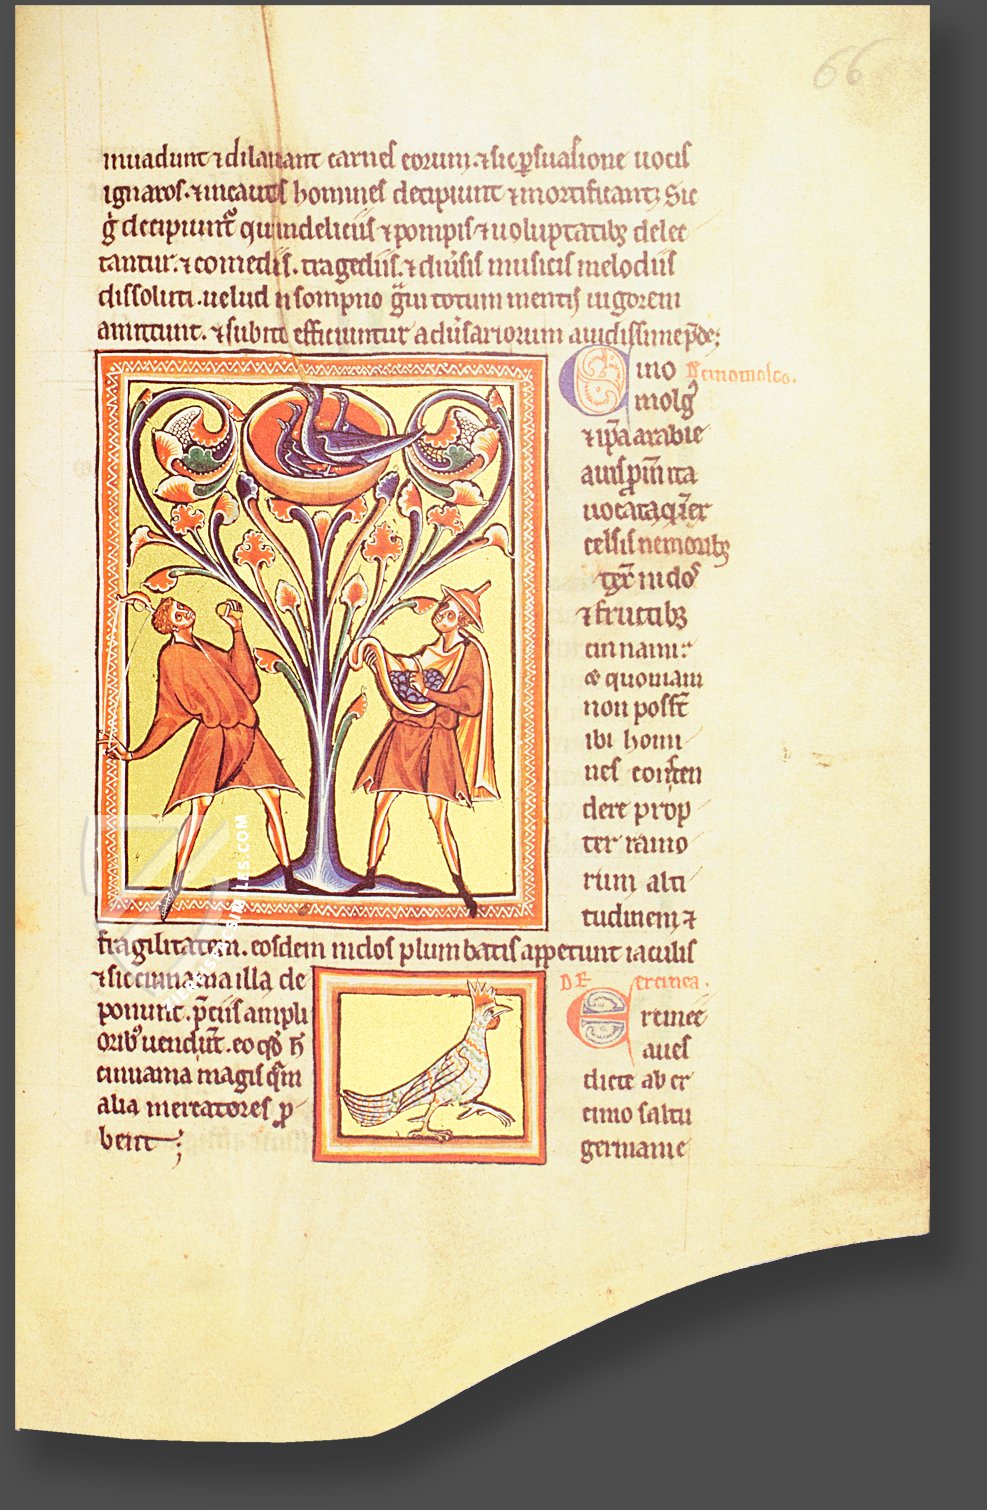 66
inuadunt ⁊ dilaniant carnes eorum. ⁊ sic p̱suasione uocis
ignaros. ⁊ incautos homines decipiunt ⁊ mortificant; Sic
g̊ decipiunt᷑ qui in deliciis ⁊ pompis ⁊ uoluptatibꝫ delec
tantur. ⁊ comediis. tragediis. ⁊ diu̾sis musicis melodiis
dissoluti. uelud in sompno totum mentis uigorem
amittunt. ⁊ subito efficiuntur adu̾sariorum auidissime p̄de;
Cino De cinomolgo.
molg᷒
⁊ ip̄a arabie
auis p̱ꝑm̄ ita
uocata q̄ in er
celsis nemoribꝫ
tex̄ nidos
⁊ fructibꝫ
cinnami
⁊ quoniam
non poss̄t
ibi homi
nes conscen
dere prop
ter ramo
rum alti
tudinem ⁊
fragilitatem. eosdem nidos plumbatis appetunt iaculis
⁊ sic cinnama illa de
ponunt. p̄ciis ampli
orib᷒ uendūt. eo qd̓
cinnama magis qͣm
alia mercatores p̱
bent ;
DE ercinea.
Ercinee
aues
dicte ab er
cinio saltu
germanie
TIMSFACSIMILES.COM